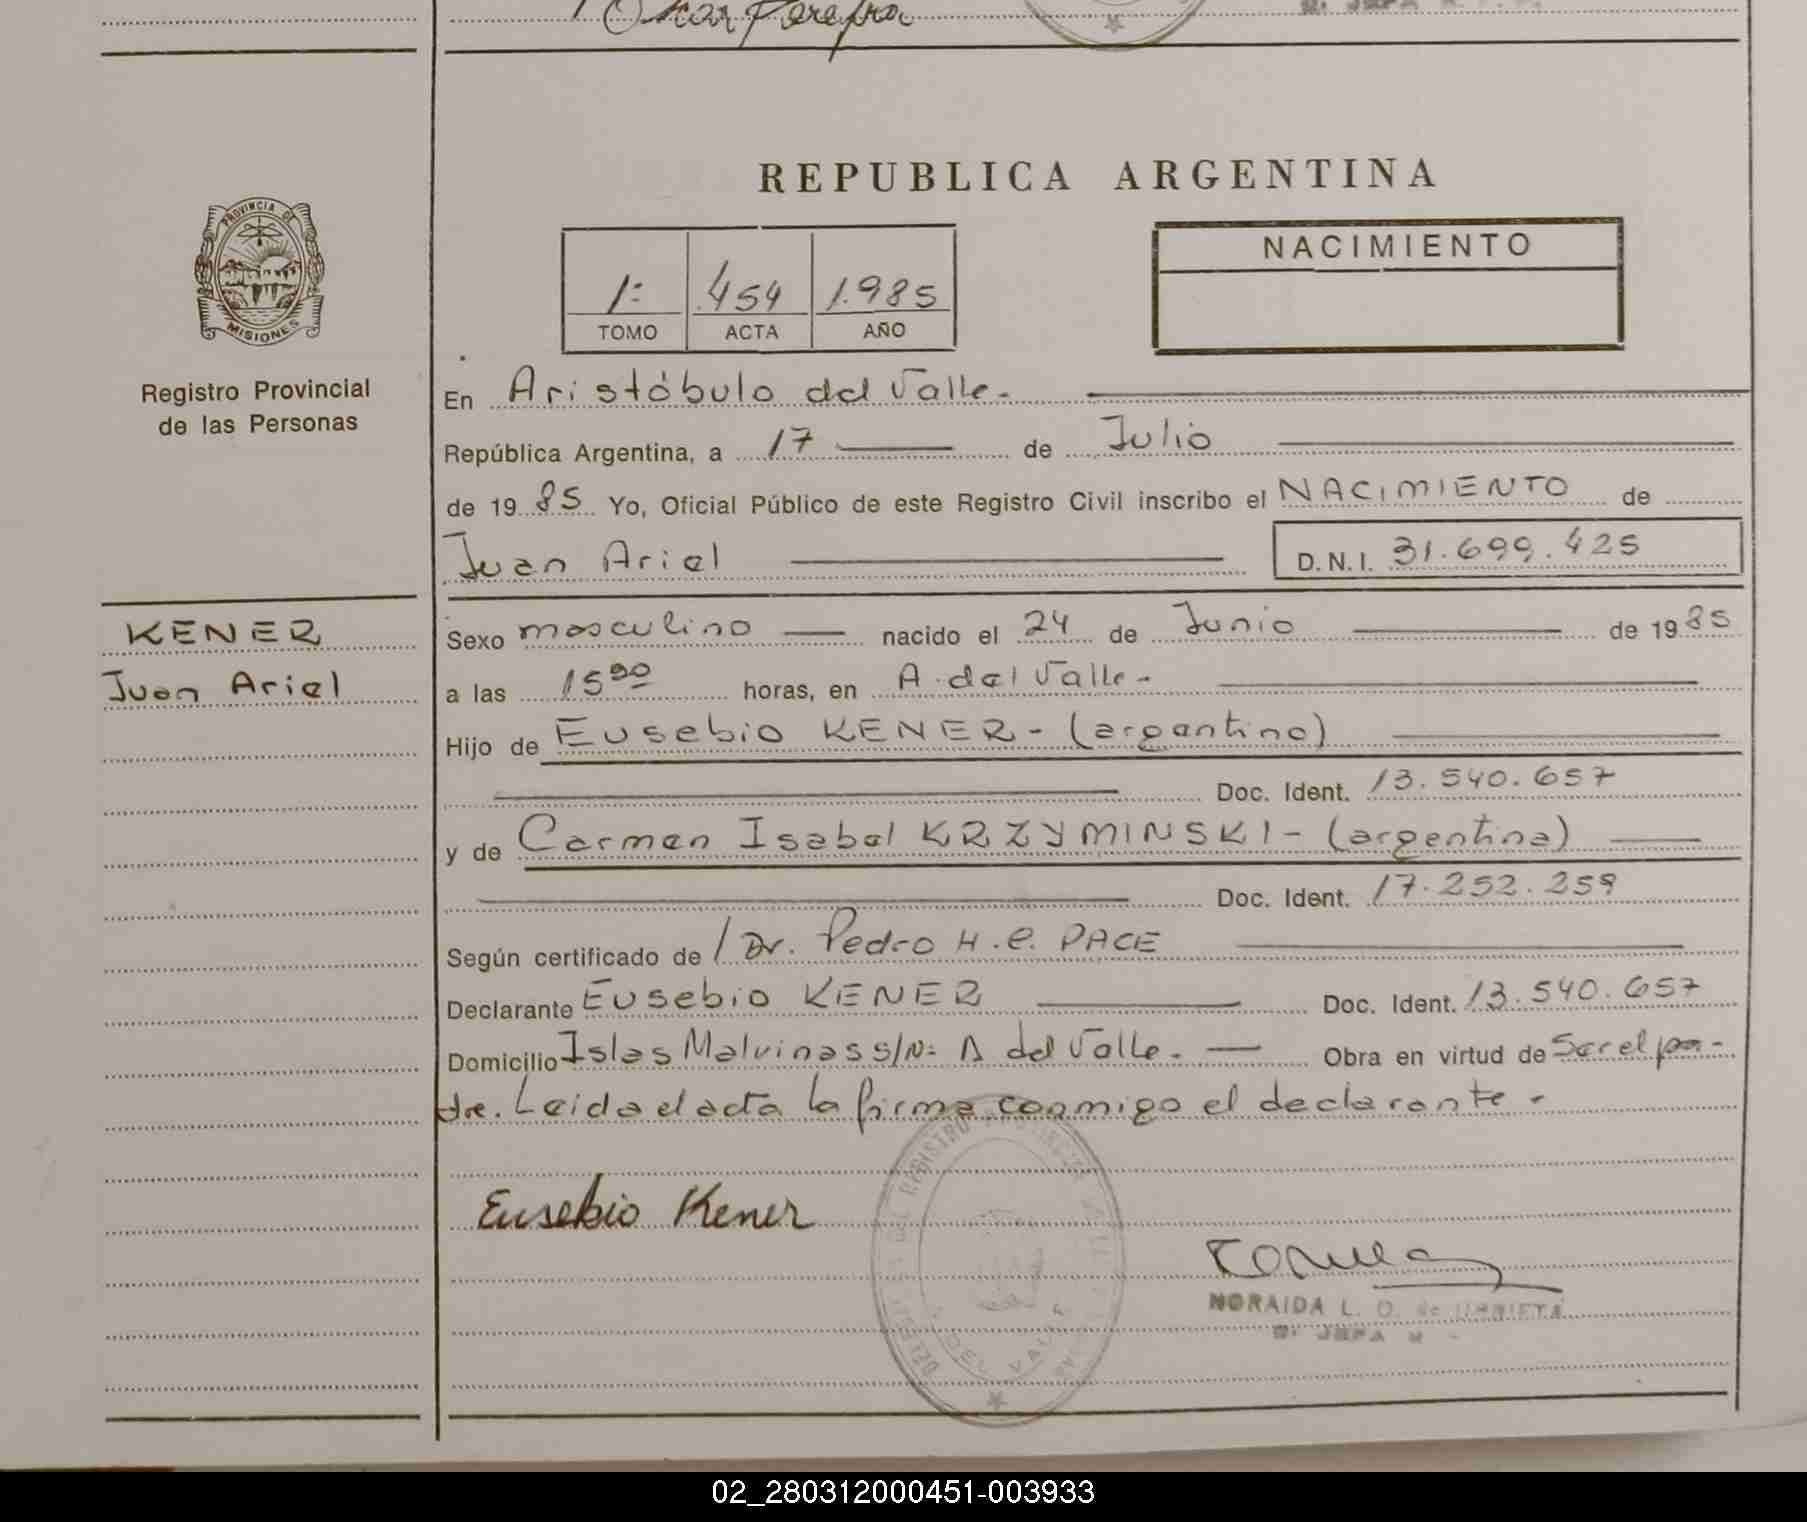 Oscar Pereyra
REPUBLICA ARGENTINA
PROVINCIA DE
MISIONES
Registro Provincial
de las Personas
NACIMIENTO
1º 454 1.985
TOMO ACTA AÑO
En Aristóbulo del Valle.-
República Argentina, a 17 de Julio
de 1985 Yo, Oficial Público de este Registro Civil inscribo el NACIMIENTO de
Juan Ariel D.N.I. 31.699.425
KENER
Juan Ariel
Sexo masculino nacido el 24 de Junio de 1985
a las 15 horas, en A. del Valle.-
Hijo de Eusebio KENER - (argentino)
Doc. Ident. 13.540.657
y de Carmen Isabel KRZYMINSKI - (argentina)
Doc. Ident. 17.252.259
Según certificado de / Dr. Pedro H. C. PACE
Declarante Eusebio KENER Doc. Ident. 13.540.657
Domicilio Islas Malvinas s/Nº A del Valle. - Obra en virtud de Ser el pa-
dre. Leida el acta la firma conmigo el declarante.-
Eusebio Kener
NORAIDA L. O. de
JEFA
DEL VALLE
02_280312000451-003933